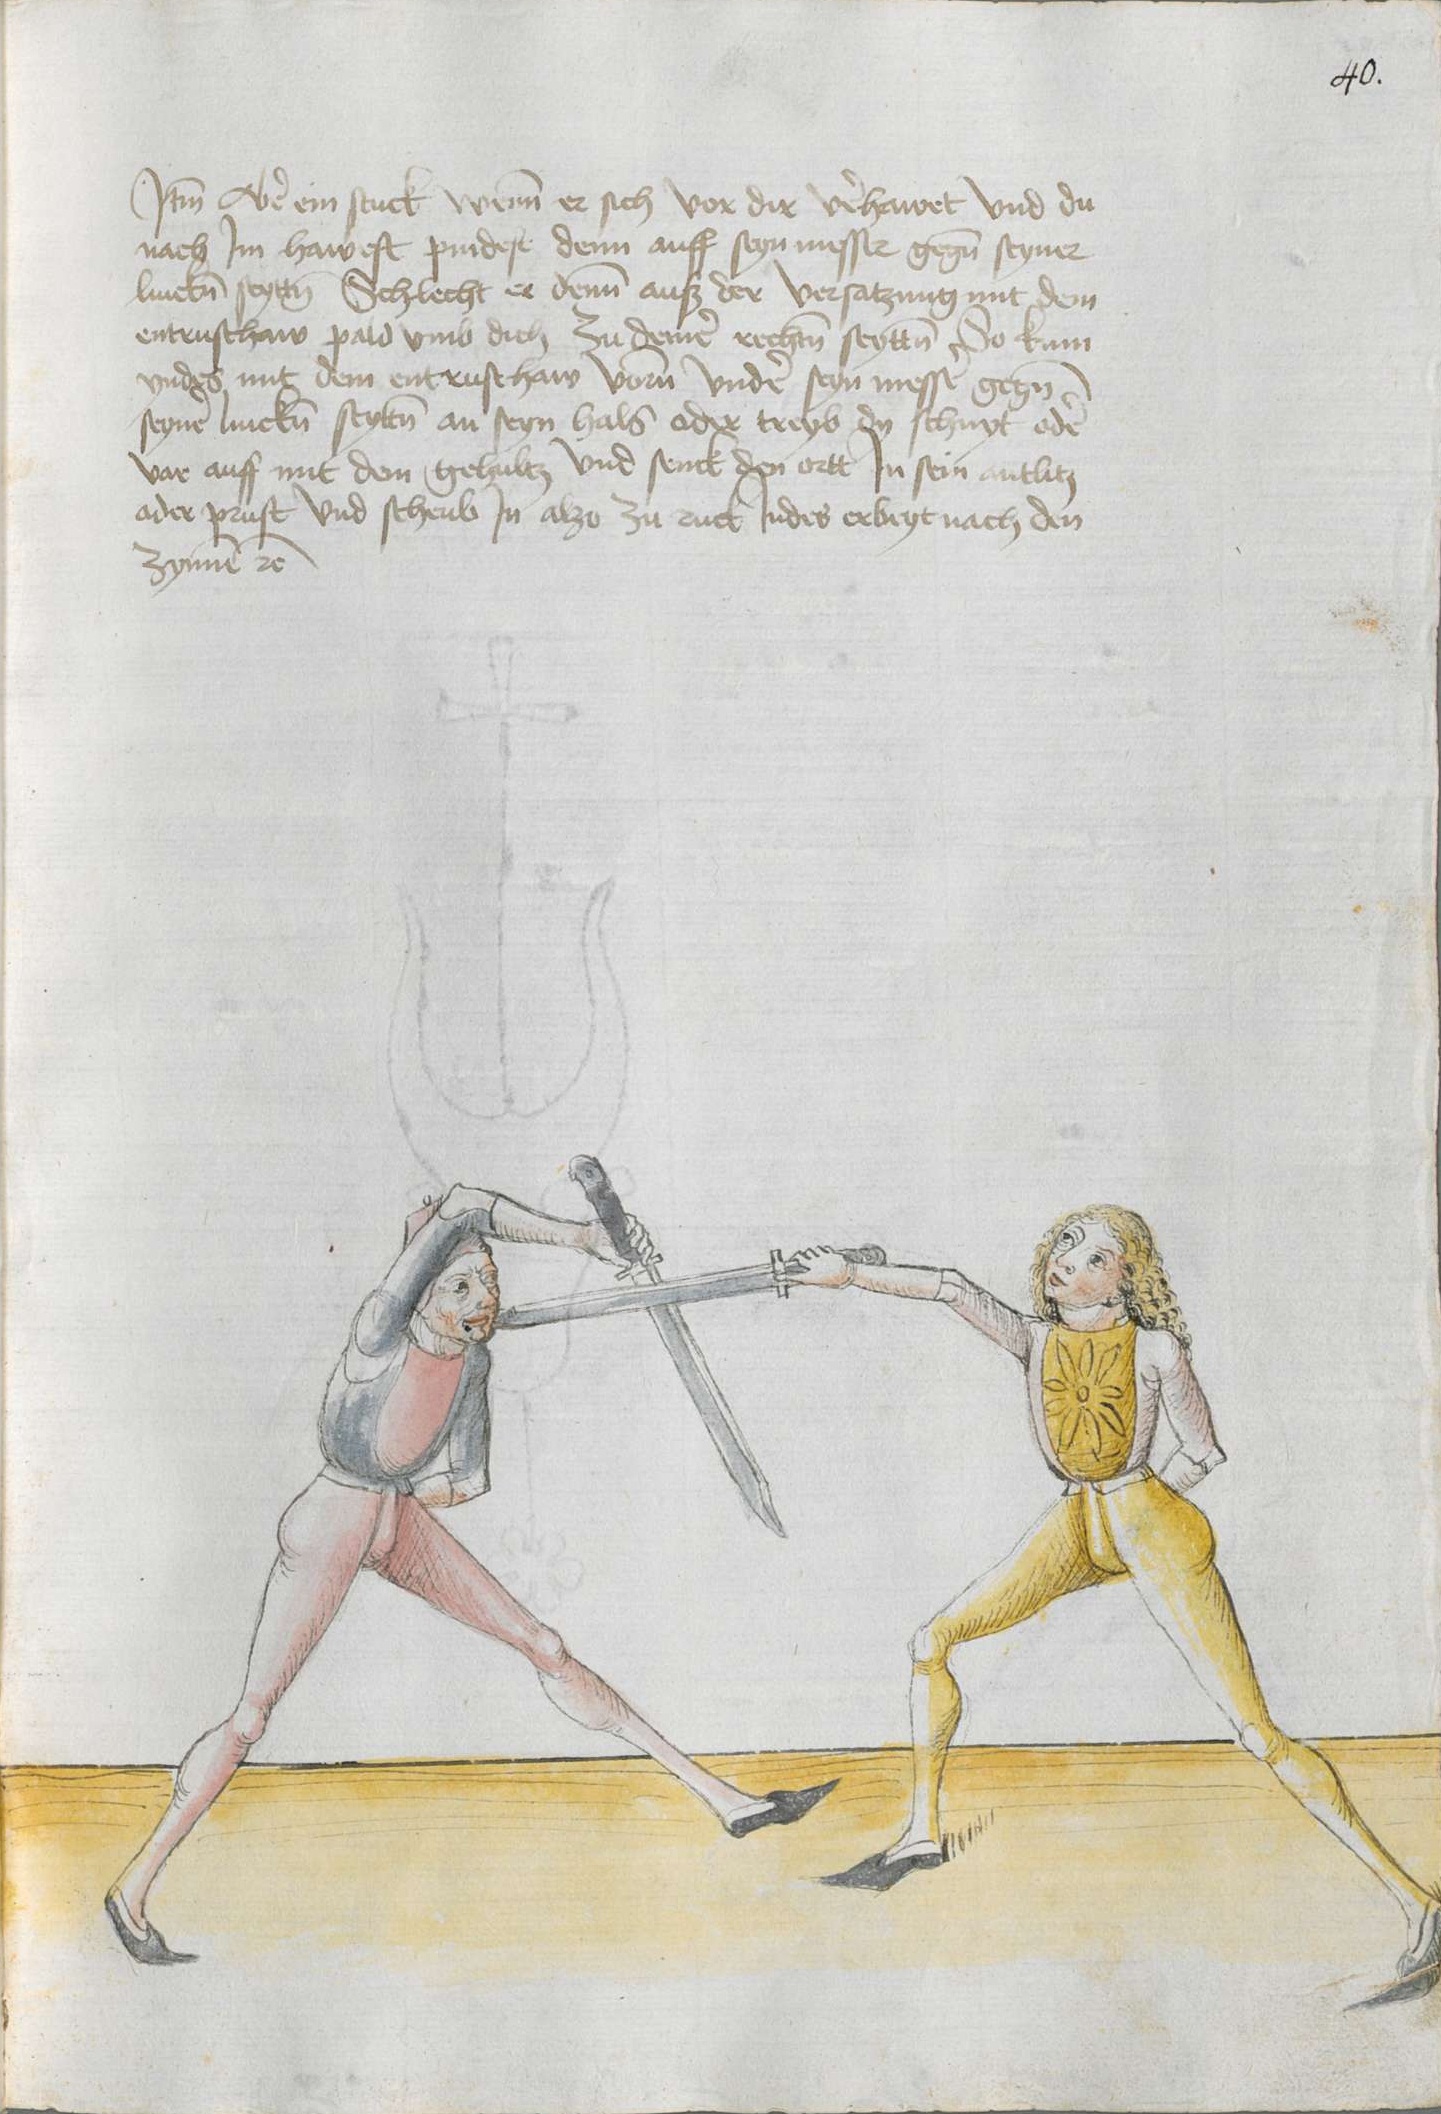 40.
Itm̄ Abe᷑ ein stuck wenn̄ er sich vor dir ve᷑hawet vnd du
nach Im hawest pindest denn auff seyn messer gegn̄ seyner
linckn̄ seyttn̄ Schlecht er denn̄ auß der versatzung mit dem
entrusthaw pald vmb dich zu deine᷑ rechtn̄ seyttn̄ So kum
yndes mit dem entrusthaw vorn̄ vnde᷑ seyn messe᷑ gegn̄
seyne᷑ linckn̄ seyttn̄ an seyn hals oder treyb dy schnyt ode᷑
var auff mit dem gehultz vnd senck den ortt In sein antlitz
oder prust vnd scheub In alzo zu ruck Indes erbeyt nach den
zynnē ꝛc̄